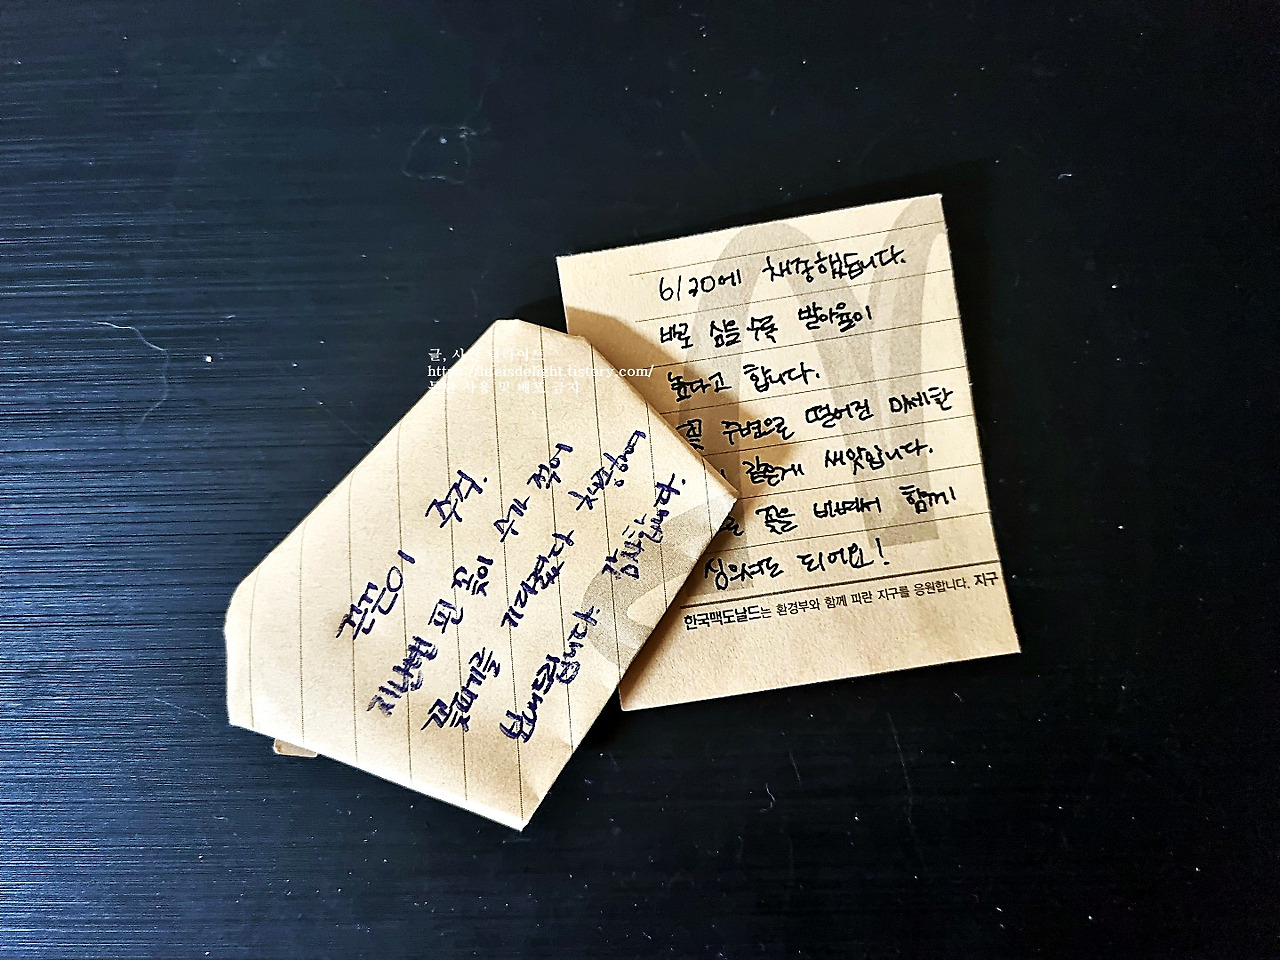 끈끈이 주걱.
지난번 핀 꽃이 수가 적어
꽃피기를 기다렸다 채종하여
보내드립니다.
감사합니다.
6/20에 채종했습니다.
바로 심을 수록 발아율이
높다고 합니다.
꽃 주변으로 떨어진 미세한
같은게 씨앗입니다.
꽃을 비벼서 함께
심으셔도 되어요!
한국맥도날드는 환경부와 함께 파란 지구를 응원합니다. 지구
글,
https://lifeisdelight.tistory.com/
사용 및 배포 금지